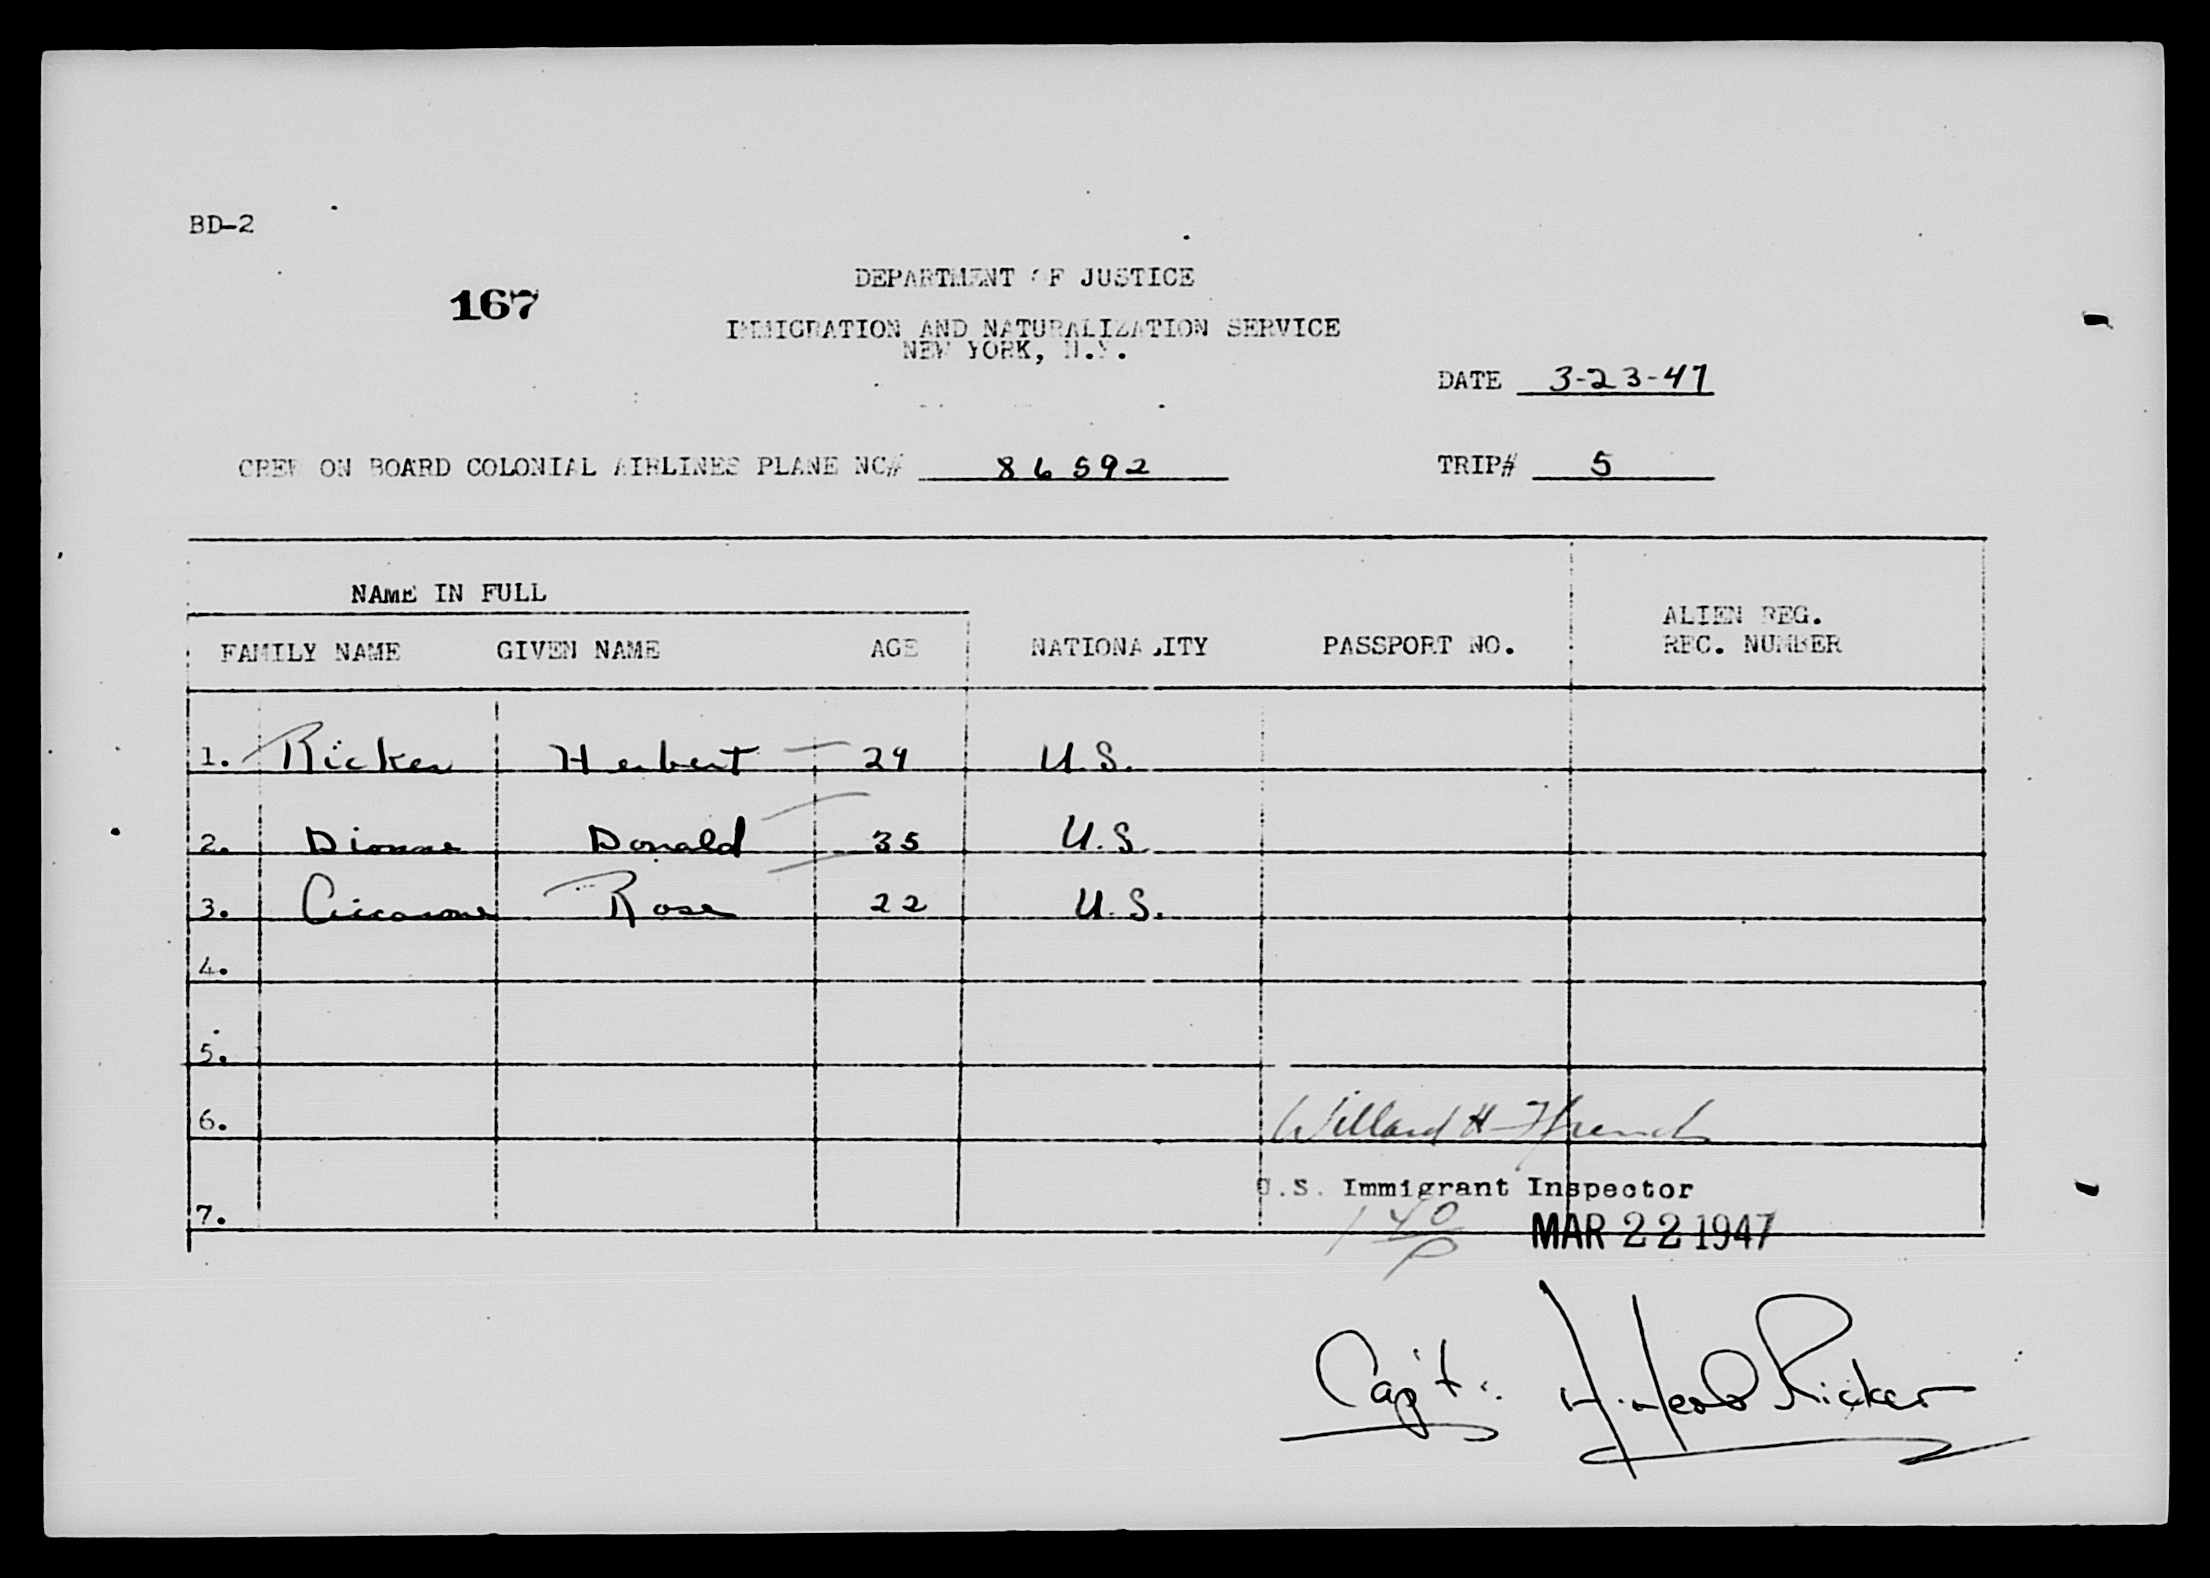 BD-2
167
DEPARTMENT OF JUSTICE
IMMIGRATION AND NATURALIZATION SERVICE
NEW YORK, N.Y.
DATE 3-23-47
CREW ON BOARD COLONIAL AIRLINES PLANE NC# 86592 TRIP# 5
NAME IN FULL
FAMILY NAME GIVEN NAME AGE NATIONALITY PASSPORT NO. ALIEN REG. REC. NUMBER
1. Ricker Herbert 29 U.S.
2. Dionne Donald 35 U.S.
3. Ciccarone Rose 22 U.S.
4.
5.
6. Willard H. Ffrench
U.S. Immigrant Inspector
7.
MAR 22 1947
Capt. H. Herb Ricker